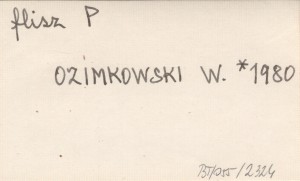 flisz P
OZIMKOWSKI W. *1980
/2324